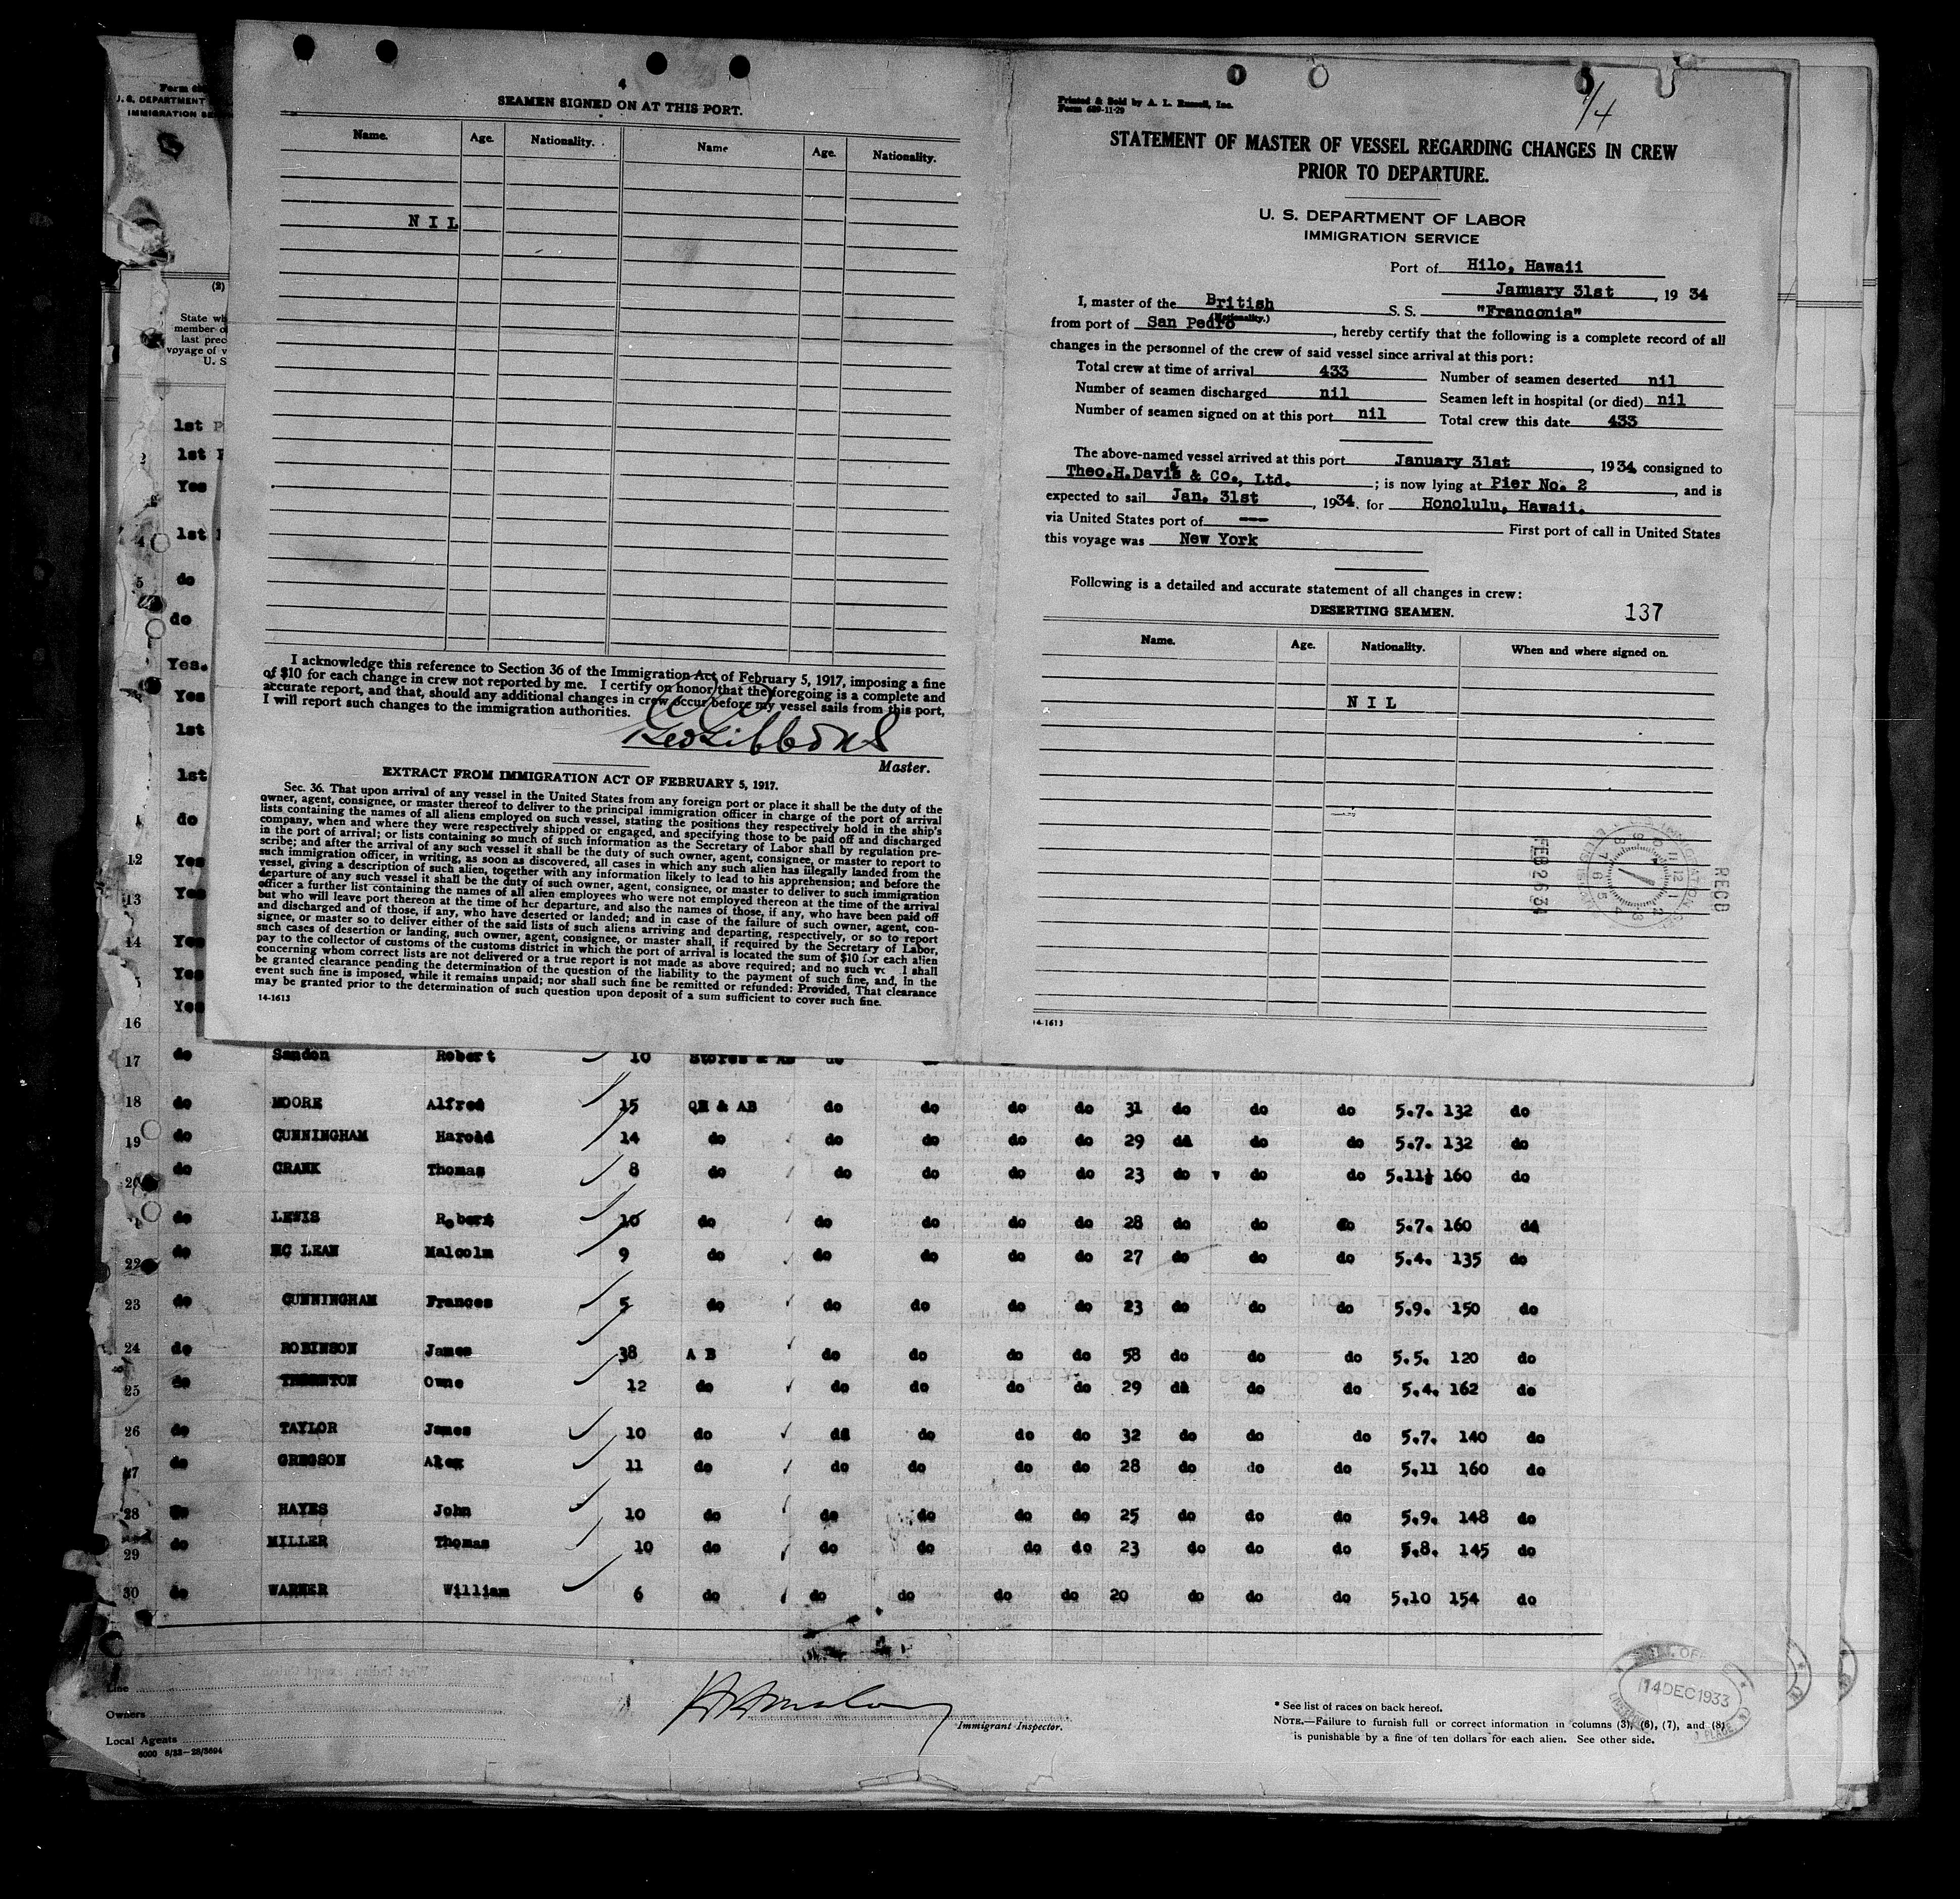 Form
U. S. DEPARTMENT
IMMIGRATION
(2)
State
member
last prec
voyage of v
U. S
1st P
1st
Yes
1st
do
do
Yes.
Yes
1st
1st
do
12 Yes
13 Yes
14 Yes
Yes
16 Yes
4
SEAMEN SIGNED ON AT THIS PORT.
Name. Age. Nationality. Name Age. Nationality.
NIL
I acknowledge this reference to Section 36 of the Immigration Act of February 5, 1917, imposing a fine
of $10 for each change in crew not reported by me. I certify on honor that the foregoing is a complete and
accurate report, and that, should any additional changes in crew occur before my vessel sails from this port,
I will report such changes to the immigration authorities.
Geo Gibbons
Master.
EXTRACT FROM IMMIGRATION ACT OF FEBRUARY 5, 1917.
Sec. 36. That upon arrival of any vessel in the United States from any foreign port or place it shall be the duty of the
owner, agent, consignee, or master thereof to deliver to the principal immigration officer in charge of the port of arrival
lists containing the names of all aliens employed on such vessel, stating the positions they respectively hold in the ship's
company, when and where they were respectively shipped or engaged, and specifying those to be paid off and discharged
in the port of arrival; or lists containing so much of such information as the Secretary of Labor shall by regulation pre-
scribe; and after the arrival of any such vessel it shall be the duty of such owner, agent, consignee, or master to report to
such immigration officer, in writing, as soon as discovered, all cases in which any such alien has illegally landed from the
vessel, giving a description of such alien, together with any information likely to lead to his apprehension; and before the
departure of any such vessel it shall be the duty of such owner, agent, consignee, or master to deliver to such immigration
officer a further list containing the names of all alien employees who were not employed thereon at the time of the arrival
but who will leave port thereon at the time of her departure, and also the names of those, if any, who have been paid off
and discharged and of those, if any, who have deserted or landed; and in case of the failure of such owner, agent, con-
signee, or master so to deliver either of the said lists of such aliens arriving and departing, respectively, or so to report
such cases of desertion or landing, such owner, agent, consignee, or master shall, if required by the Secretary of Labor,
pay to the collector of customs of the customs district in which the port of arrival is located the sum of $10 for each alien
concerning whom correct lists are not delivered or a true report is not made as above required; and no such ve l shall
be granted clearance pending the determination of the question of the liability to the payment of such fine, and, in the
event such fine is imposed, while it remains unpaid; nor shall such fine be remitted or refunded: Provided, That clearance
may be granted prior to the determination of such question upon deposit of a sum sufficient to cover such fine.
14-1613
Printed & Sold by A. L. Russell, Inc.
Form 689-11-29
1/4
STATEMENT OF MASTER OF VESSEL REGARDING CHANGES IN CREW
PRIOR TO DEPARTURE.
U. S. DEPARTMENT OF LABOR
IMMIGRATION SERVICE
Port of Hilo, Hawaii
January 31st, 19 34
I, master of the British S. S. "Franconia"
(Nationality.)
from port of San Pedro, hereby certify that the following is a complete record of all
changes in the personnel of the crew of said vessel since arrival at this port:
Total crew at time of arrival 433 Number of seamen deserted nil
Number of seamen discharged nil Seamen left in hospital (or died) nil
Number of seamen signed on at this port nil Total crew this date 433
The above-named vessel arrived at this port January 31st, 1934 consigned to
Theo.H.Davis & Co., Ltd. ; is now lying at Pier No. 2, and is
expected to sail Jan. 31st, 1934. for Honolulu, Hawaii.
via United States port of --- First port of call in United States
this voyage was New York
Following is a detailed and accurate statement of all changes in crew:
DESERTING SEAMEN. 137
Name. Age. Nationality. When and where signed on.
NIL
RECD
FEB 26 34
14-1613
17 do Sandon Robert 10 Stores & AB do
18 do MOORE Alfred 15 QM & AB do do do do 31 do do do 5.7. 132 do
19 do CUNNINGHAM Harold 14 do do do do do 29 do do do 5.7. 132 do
20 do CRANK Thomas 8 do do do do do 23 do do do 5.11½ 160 do
do LEWIS Robert 10 do do do do do 28 do do do 5.7. 160 do
22 do MC LEAN Malcolm 9 do do do do do 27 do do do 5.4. 135 do
23 do CUNNINGHAM Frances 5 do do do do do 23 do do do 5.9. 150 do
24 do ROBINSON James 38 A B do do do do 58 do do do 5.5. 120 do
25 do THORNTON Owne 12 do do do do do 29 do do do 5.4. 162 do
26 do TAYLOR James 10 do do do do do 32 do do do 5.7. 140 do
27 do GREGSON Alex 11 do do do do do 28 do do do 5.11 160 do
28 do HAYES John 10 do do do do do 25 do do do 5.9. 148 do
29 do MILLER Thomas 10 do do do do do 23 do do do 5.8. 145 do
30 do WARNER William 6 do do do do do 20 do do do 5.10 154 do
Line
Owners
Local Agents
6000 8/33-28/3694
Immigrant Inspector.
* See list of races on back hereof.
NOTE.—Failure to furnish full or correct information in columns (3), (6), (7), and (8)
is punishable by a fine of ten dollars for each alien. See other side.
14 DEC 1933